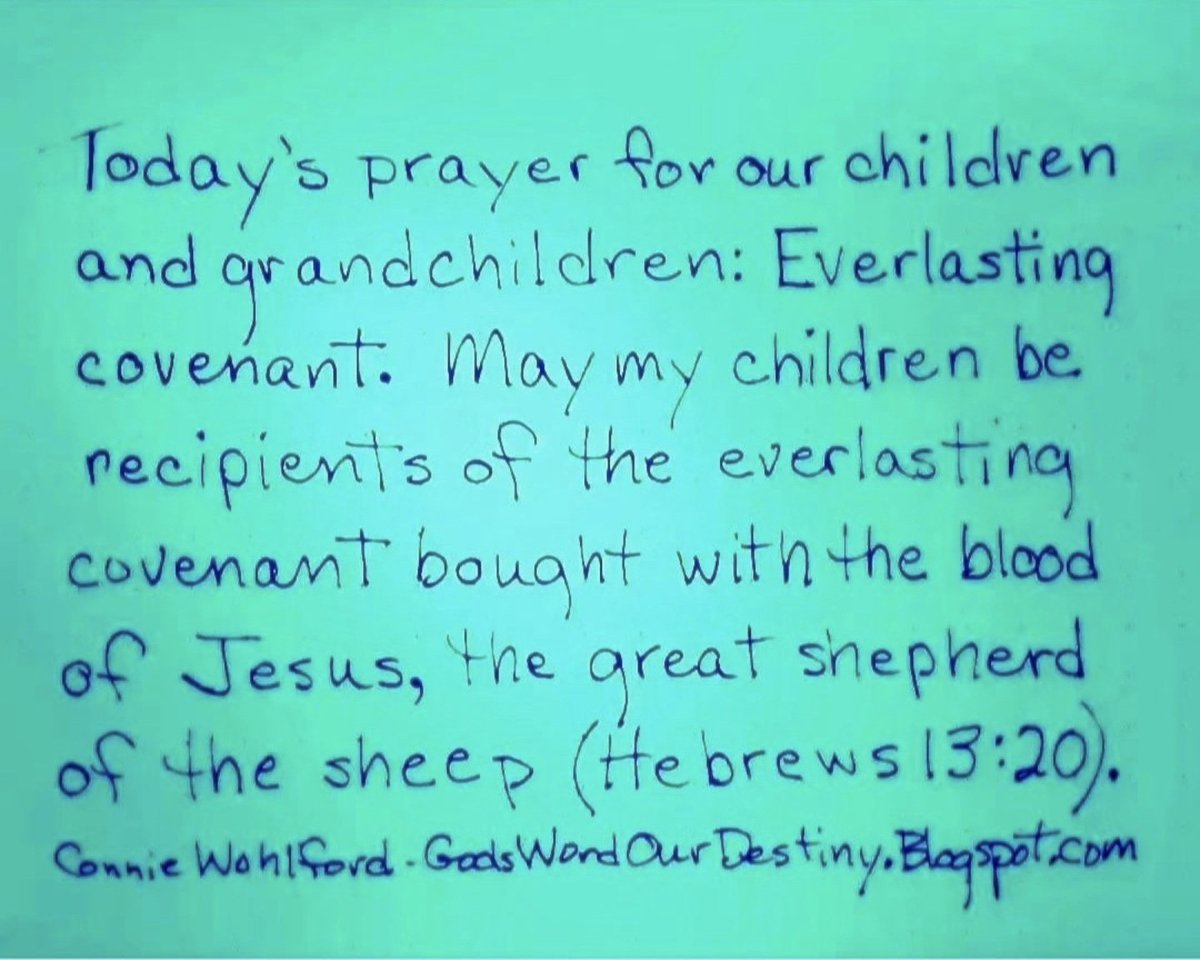 Today's prayer for our children
and grandchildren: Everlasting
covenant. May my children be
recipients of the everlasting
covenant bought with the blood
of Jesus, the great shepherd
of the sheep (Hebrews 13:20).
Connie Wohlford - GodsWordOurDestiny.Blogspot.com